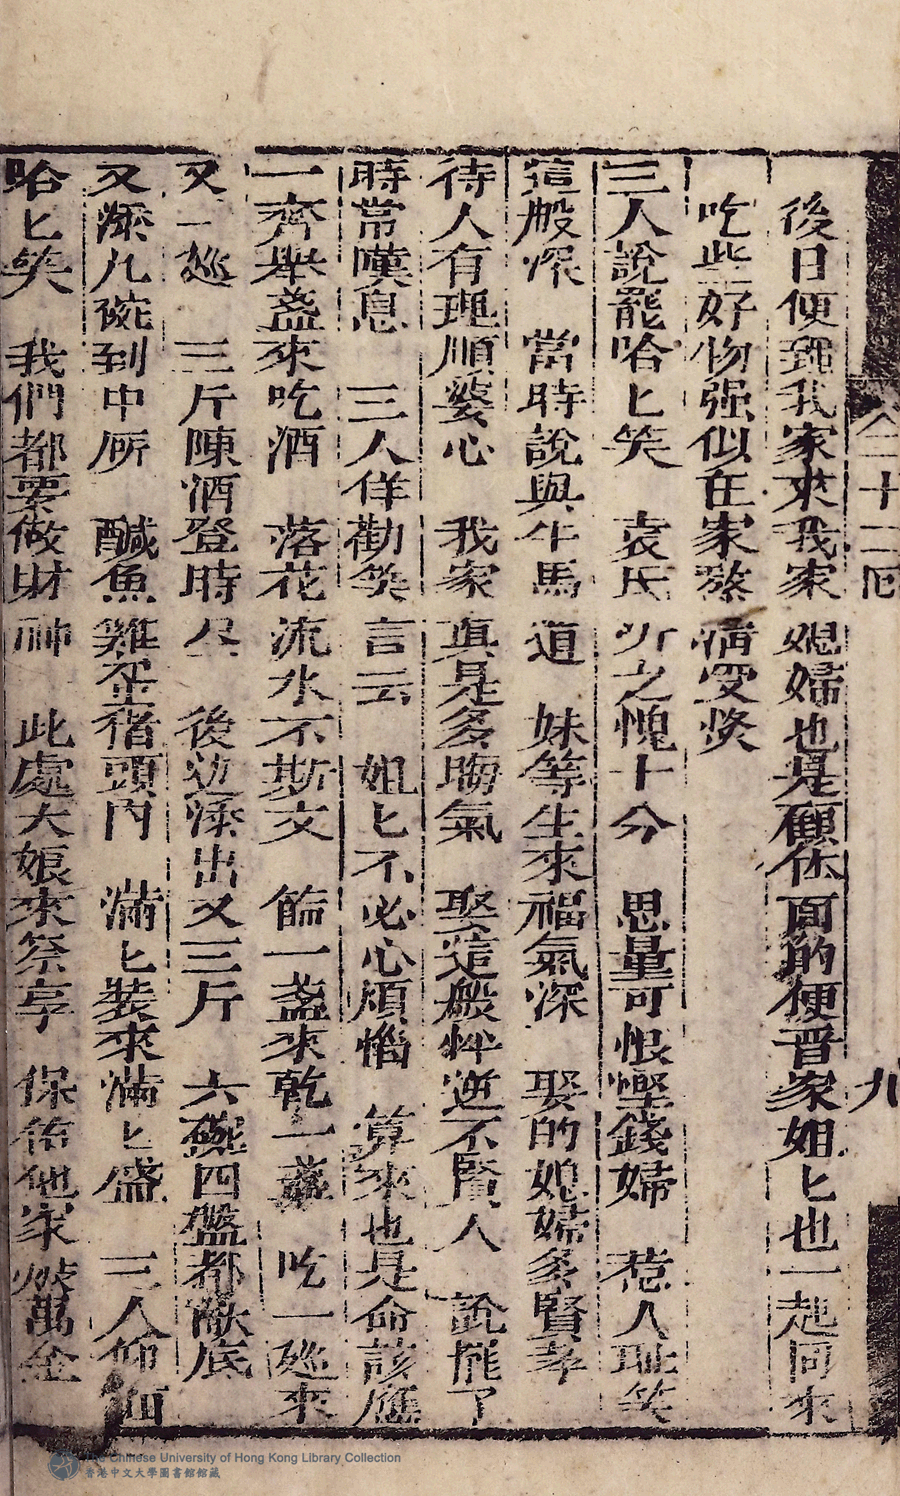 八二十二回 九
後日便到我家來我家媳婦也是顧体面的便晋家姐匕也一起同來
吃些好物强似在家熬淸受淡
三人說罷哈匕笑 袁氏 之愧十分 思量可恨慳錢婦 惹人耻笑
這般深 當時說與牛馬道 妹等生來福氣深 娶的媳婦多賢孝
待人有理順婆心 我家真是多晦氣 娶這般忤逆不賢人 說罷了
時常嘆息 三人佯勸笑言云 姐匕不必心煩惱 算來也是命該應
一齊舉盞來吃酒 落花流水不斯文 篩一盞來乾一盞 吃一廵來
又一廵 三斤陳酒登時尽 後边添出又三斤 六碗四盤都敵底
又添几碗到中㕔 鹹魚雞蛋猪頭肉 滿匕裝來滿匕盛 三人仰面
哈匕笑 我們都要做財神 此處大娘來祭享 保佑他家 萬金
The Chinese University of Hong Kong Library Collection
香港中文大學圖書館館藏